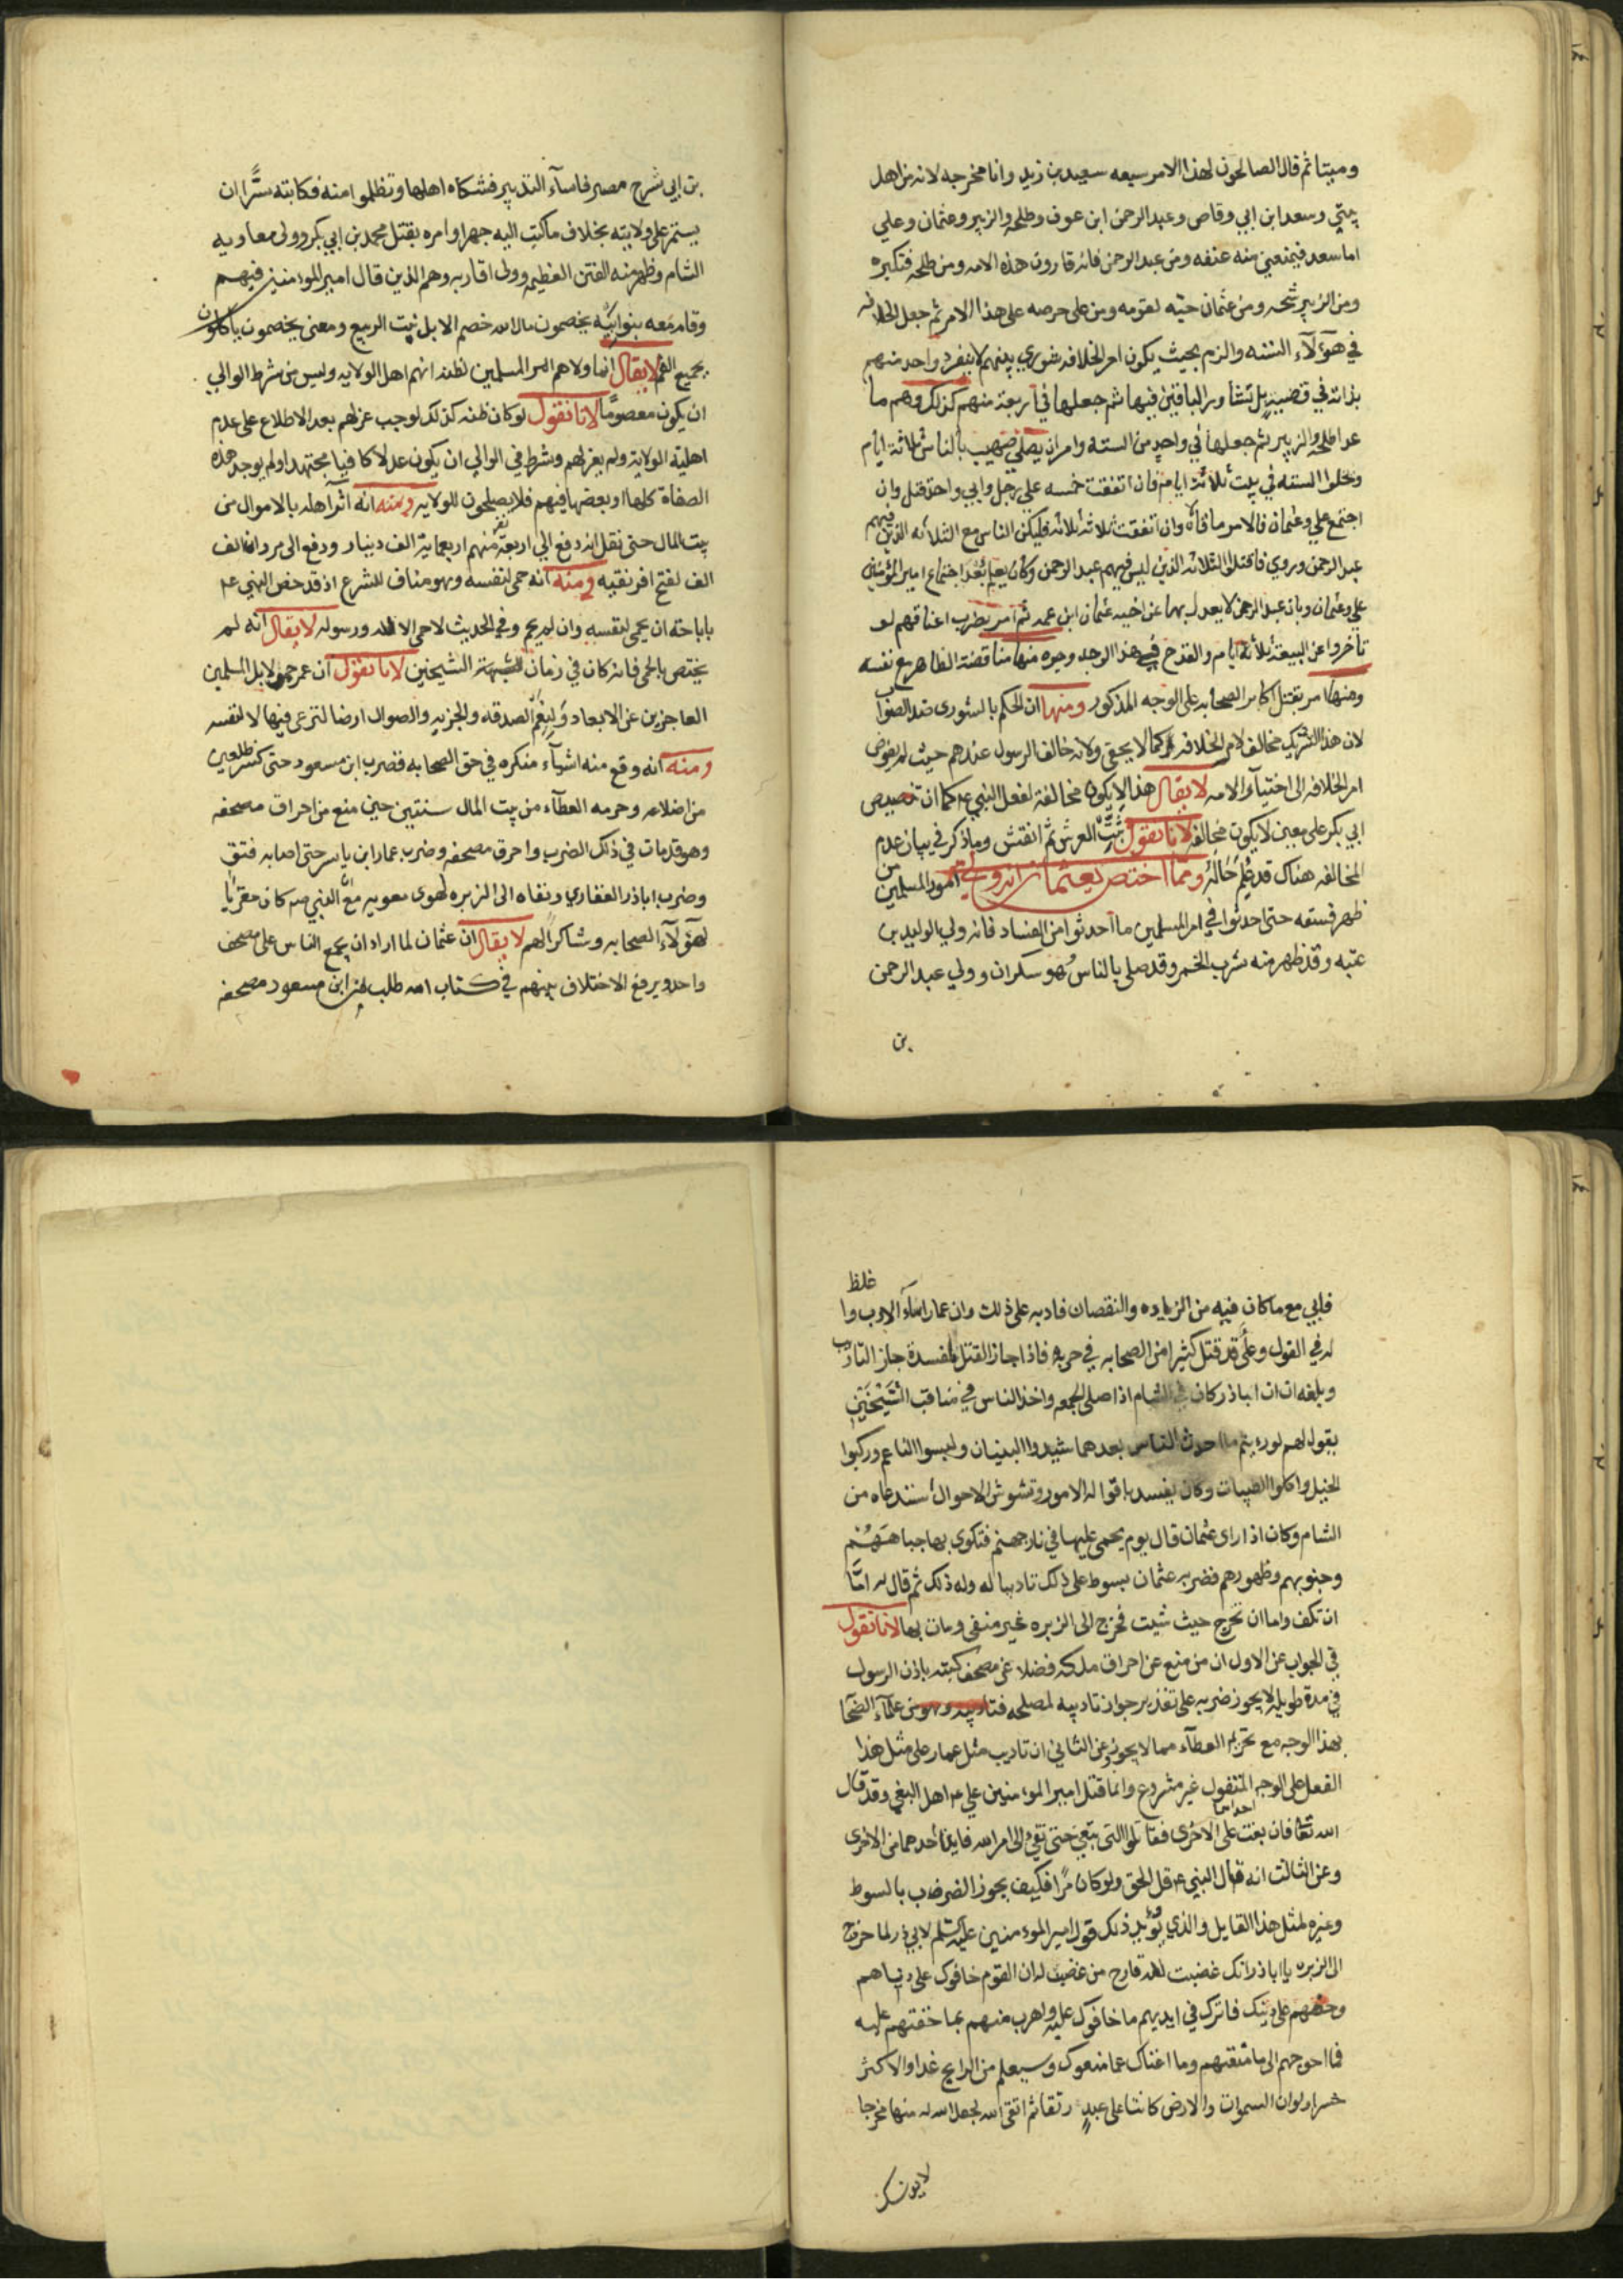 وميتا ثم قال الصالحون لهذا الامر سبعه سعيد بن زيد وانا مخرجه لانه من اهل
بيتي وسعد ابن ابي وقاص وعبد الرحمن ابن عوف وطلحه والزبير وعثمان وعلي
اما سعد فيمنعني منه عنفه ومن عبد الرحمن فانه قارون هذه الامه ومن طلحه فتكبره
ومن الزبير شحه ومن عثمان حبه لقومه ومن علي حرصه على هذا الامر ثم جعل الخلافه
في هؤلآء السته والزم بحيث يكون امر الخلافه شوري بينهم لا ينفرد واحد منهم
بذاته في قضيته بل تشاور الباقين فيها ثم جعلها في اربعة منهم كذلك وهم ما
عدا طلحه والزبير ثم جعلها في واحد من السته وامر ان يصلي صهيب بالناس ثلاثة ايام
وتخلوا السته في بيت ثلاثة ايام فان اتفقت خمسه علي رجل وابي واحد قتل وان
اجتمع علي وعثمان فالامر ما قالاه وان اتفقت ثلاثه ثلاثه فليكن الناس مع الثلاثه الذين فيهم
عبد الرحمن وروي فاقتلوا الثلاثه الذين ليس فيهم عبد الرحمن وكان يعلم بعد اجتماع امير المؤمنين
علي وعثمان وبان عبد الرحمن لا يعدل بها عن اخيه عثمان ابن عمه ثم امر بضرب اعناقهم لو
تأخروا عن البيعة ثلاثة ايام والقدح في هذا الوجه وجوه منها مناقضته الظاهر مع نفسه
ومنها امر بقتل اكابر الصحابه على الوجه المذكور ومنها ان الحكم بالشوري ضد الصواب
لان هذا التشريك مخالف لامر الخلافه كما لا يخفى ولانه خالف الرسول عندهم حيث لم يفوض
امر الخلافه الى اختيآر الامه لا يقال هذا لا يكون مخالفة لفعل النبي ع كما ان تخصيص
ابي بكر علي معين لا يكون مخالفه لانا نقول ثبت العرش ثم انقش وما ذكر في بيان عدم
المخالفه هناك قد علم حاله ومما اختص بعثمان انه ولي امور المسلمين من
ظهر فسقه حتى احدثوا في امر المسلمين ما احدثوا من الفساد فانه ولي الوليد بن
عتبه وقد ظهر منه شرب الخمر وقد صلي بالناس وهو سكران وولي عبد الرحمن
بن
بن ابي شرح مصر فاسآء التدبير فشكاه اهلها وتظلموا منه فكاتبه سرا ان
يستمر على ولايته بخلاف ما كتب اليه جهرا وامره بقتل محمد بن ابي بكر وولى معاويه
الشام وظهر منه الفتن العظيمه وولى اقاربه وهم الذين قال امير المومنين فيهم
وقام معه بنو ابيه يخصمون مال الله خصم الابل نبت الربيع ومعنى يخصمون ياكلون
بجميع الفم لا يقال انما ولاهم امر المسلمين لظنه انهم اهل الولايه وليس من شرط الوالي
ان يكون معصوما لانا نقول لو كان ظنه كذلك لوجب عزلهم بعد الاطلاع على عدم
اهلية الولاية ولم يعزلهم وشرط في الوالي ان يكون عدلا كافيا مجتهدا ولم يوجد هذه
الصفاة كلها او بعضها فيهم فلا يصلحون للولايه ومنه انه اثر اهله بالاموال من
بيت المال حتى نقل انه دفع الي اربعة نفر منهم اربعماية الف دينار ودفع الى مروان الف
الف لفتح افريقيه ومنه انه حمى لنفسه وهو مناف للشرع اذ قد خص النبي ع
باباحته ان يحمى لنفسه وان لم يحم وفي الحديث لا حمى الا لله ورسوله لا يقال انه لم
يختص بالحمى فانه كان في زمان الشيخين لانا نقول ان عمر حمى لابل المسلمين
العاجزين عن الابعاد ولنعم الصدقه والجزيه والصوال ارضا لترعى فيها لا لنفسه
ومنه انه وقع منه اشيآء منكره في حق الصحابه فضرب ابن مسعود حتى كسر ضلعين
من اضلاعه وحرمه العطآء من بيت المال سنتين حين منع من احراق مصحفه
وهو قد مات في ذلك الضرب واحرق مصحفه وضرب عمار ابن ياسر حتى اصابه فتق
وضرب اباذر الغفاري ونفاه الى الزبره لهوى معويه مع ان النبي ص كان مقربا
لهؤلآء الصحابه وشاكرا لهم لا يقال ان عثمان لما اراد ان يجمع الناس على مصحف
واحد ويرفع الاختلاف بينهم في كتاب الله طلب من ابن مسعود مصحفه
فابي مع ما كان فيه من الزياده والنقصان فادبه على ذلك وان عمارا اسآء الادب واغلظ
له في القول وعلي قد قتل كثيرا من الصحابه في حربه فاذا جاز القتل لمفسدة جاز التاديب
وبلغه ان اباذر كان في الشام اذا صلى الجمعه واخذ الناس في مناقب الشيخين
يقول لهم لو رءيتم ما احدث الناس بعدهما شيدوا البنيان ولبسوا الناعم وركبوا
الخيل واكلوا الطيبات وكان يفسد باقواله الامور وتشوش الاحوال استدعاه من
الشام وكان اذا راى عثمان قال يوم يحمى عليها في نار جهنم فتكوى بها جباههم
وجنوبهم وظهورهم فضربه عثمان بسوط على ذلك تاديبا له وله ذلك ثم قال له امّا
ان تكف واما ان تخرج حيث شيت فخرج الى الزبره غير منفى ومات بها لانا نقول
في الجواب عن الاول ان من منع عن احراق ملكه فضلا عن مصحف كتبه باذن الرسول
في مدة طويله لا يجوز ضربه على تقدير جواز تاديبه لمصلحه فتاديبه وهو من علمآء الصحآبة
بهذا الوجه مع تحريم العطآء مما لا يجوز وعن الثاني ان تاديب مثل عمار على مثل هذا
الفعل على الوجه المنقول غير مشروع وانما قتل امير المومنين علي ع اهل البغي وقد قال
الله تعا فان بغت احداهما على الاخرى فقاتلوا التي تبغي حتى تفئ الى امر الله فاين احدهما من الاخرى
وعن الثالث انه قال النبي ع قل الحق ولو كان مرا فكيف يجوز الضرب بالسوط
وغيره لمثل هذا القايل والذي يؤيد ذلك قول امير المومنين عليه السلم لابي ذر لما خرج
الى الزبره يا اباذر انك غضبت لله فارج من غضبت له ان القوم خافوك على دنياهم
وخفتهم على دينك فاترك في ايديهم ما خافوك عليه واهرب منهم بما خفتهم عليه
فما احوجهم الى ما منعتهم وما اغناك عما منعوك وسيعلم من الرابح غدا والاكثر
خسرا ولو ان السموات والارض كانتا على عبد رتقا ثم اتقى الله لجعل الله له منها مخرجا
لا يونسك